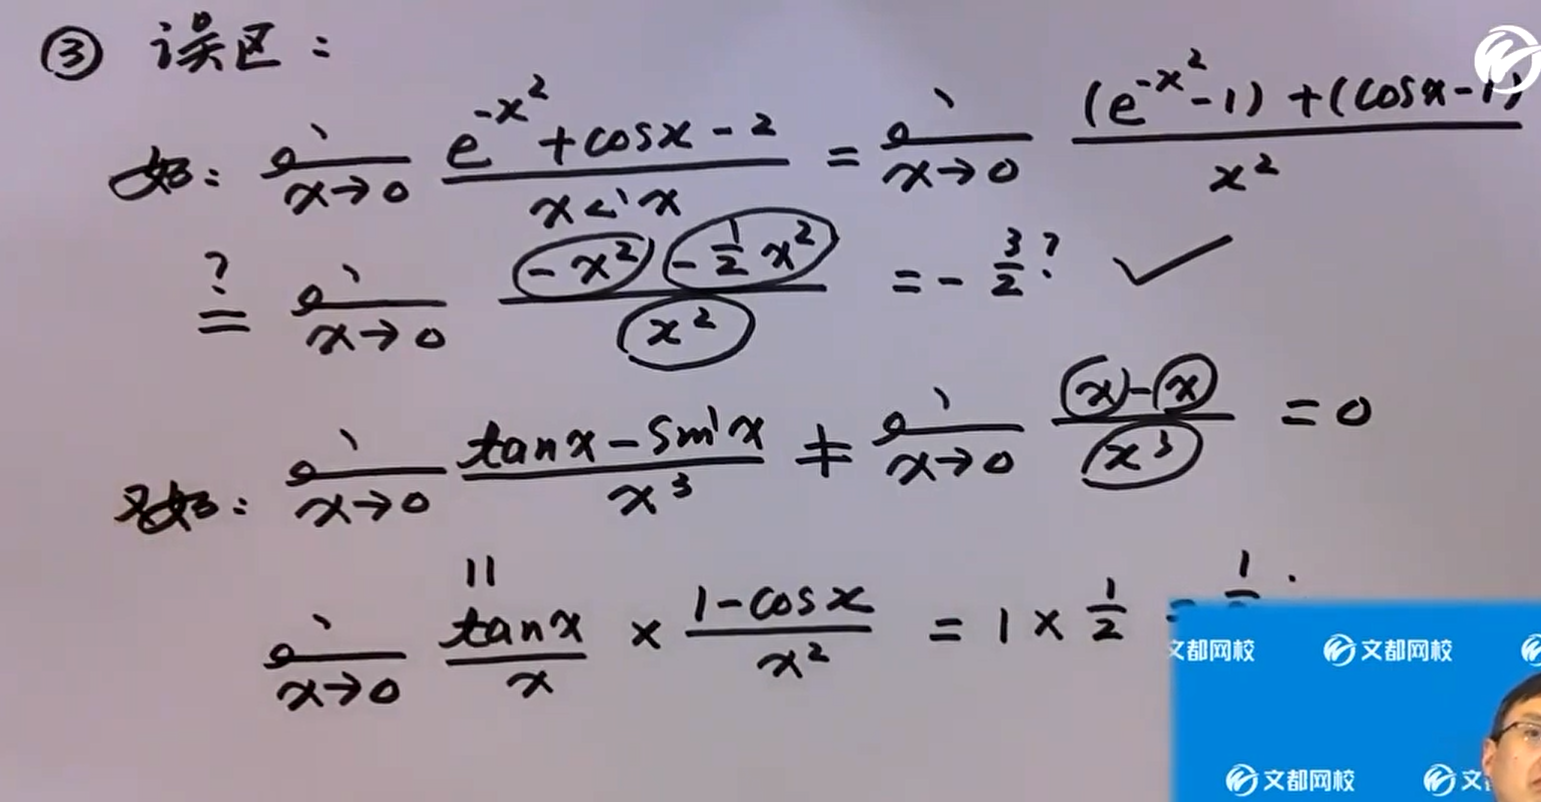 ③ 误区:
如: lim x→0 (e^(-x²) + cosx - 2)/(x sin x) = lim x→0 ((e^(-x²) - 1) + (cosx - 1))/x²
?= lim x→0 (-x² - ½x²)/x² = -3/2? ✓
又如: lim x→0 (tanx - sinx)/x³ ≠ lim x→0 (x - x)/x³ = 0
||
lim x→0 tanx/x × (1-cosx)/x² = 1 × 1/2 =
文都网校 文都网校
文都网校